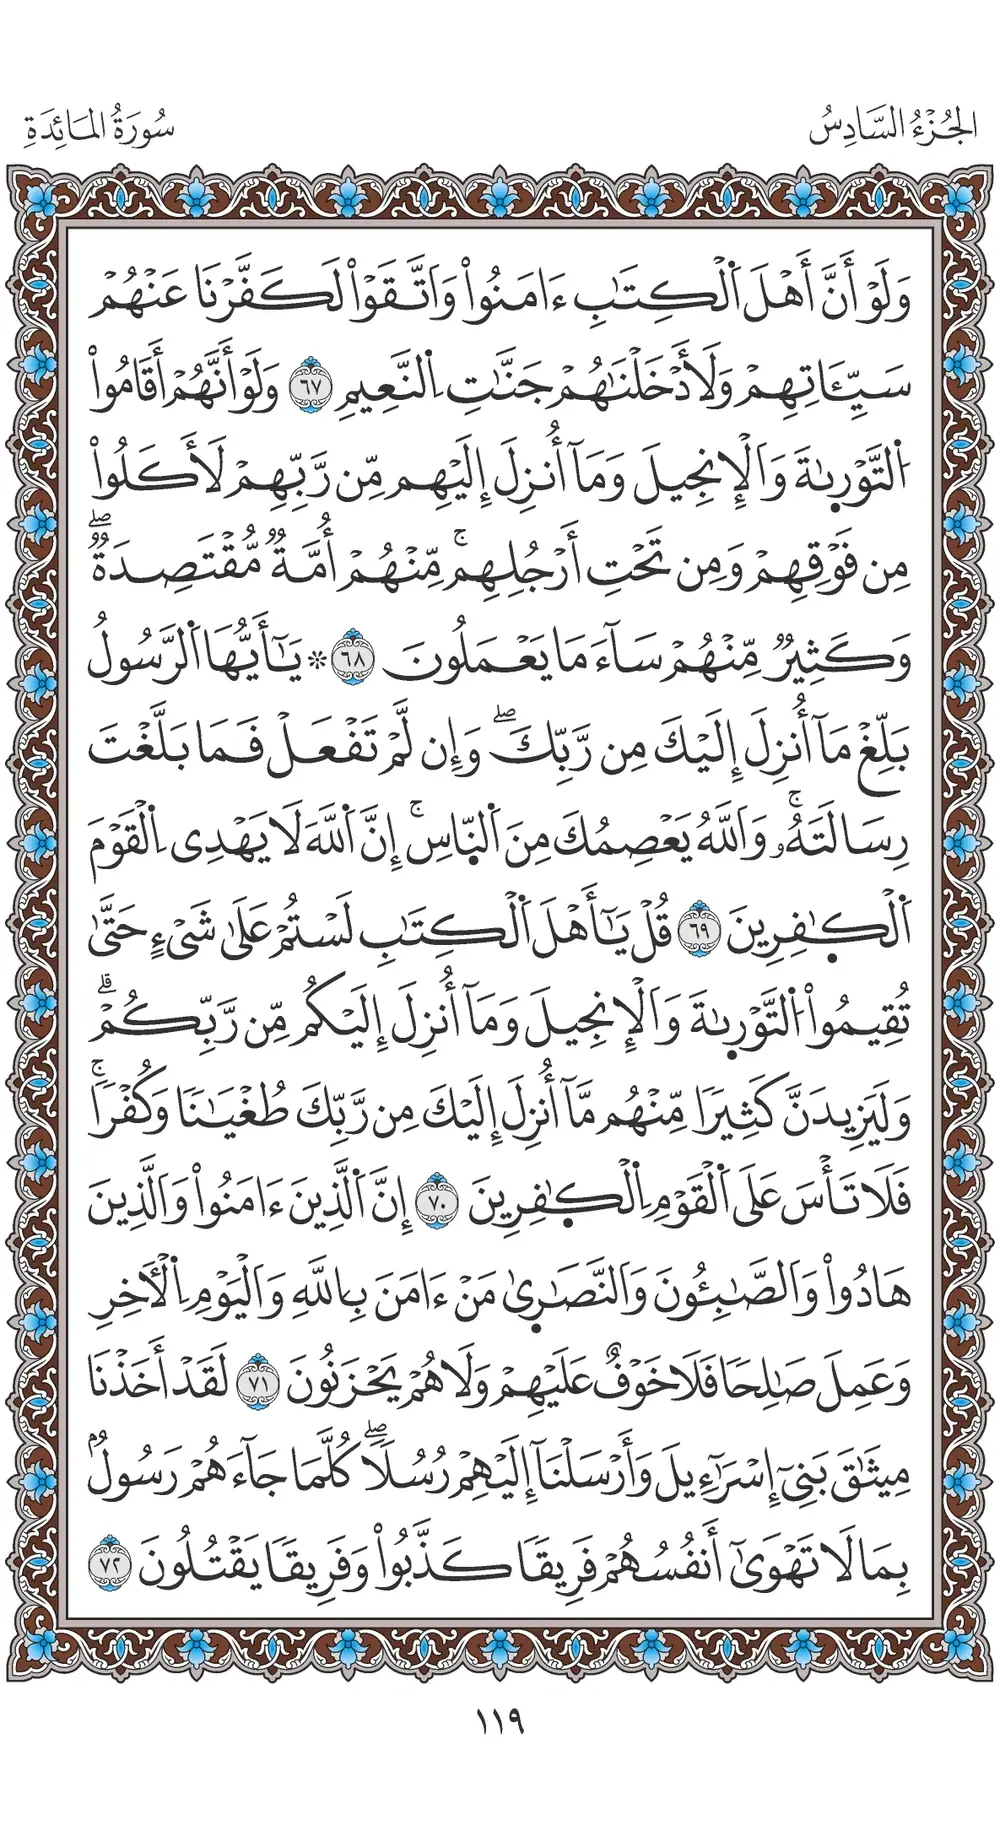 الجُزْءُ السَّادِسُ
سُورَةُ المَائِدَةِ
وَلَوۡ أَنَّ أَهۡلَ اَ۬لۡكِتَٰبِ ءَامَنُواْ وَاَتَّقَوۡاْ لَكَفَّرۡنَا عَنۡهُمۡ
سَيِّـَٔاتِهِمۡ وَلَأَدۡخَلۡنَٰهُمۡ جَنَّٰتِ اِ۬لنَّعِيمِ ٦٧ وَلَوۡ أَنَّهُمۡ أَقَامُواْ
اُ۬لتَّوۡرِىٰةَ وَاَلۡإِنجِيلَ وَمَآ أُنزِلَ إِلَيۡهِم مِّن رَّبِّهِمۡ لَأَكَلُواْ
مِن فَوۡقِهِمۡ وَمِن تَحۡتِ أَرۡجُلِهِمۚ مِّنۡهُمۡ أُمَّةٞ مُّقۡتَصِدَةٞۖ
وَكَثِيرٞ مِّنۡهُمۡ سَآءَ مَا يَعۡمَلُونَ ٦٨ ۞ يَٰٓأَيُّهَا اَ۬لرَّسُولُ
بَلِّغۡ مَآ أُنزِلَ إِلَيۡكَ مِن رَّبِّكَۖ وَإِن لَّمۡ تَفۡعَلۡ فَمَا بَلَّغۡتَ
رِسَالَتَهُۥۚ وَاَللَّهُ يَعۡصِمُكَ مِنَ اَ۬لنَّاسِۚ إِنَّ اَ۬للَّهَ لَا يَهۡدِى اِ۬لۡقَوۡمَ
اَ۬لۡكٰ۪فِرِينَ ٦٩ قُلۡ يَٰٓأَهۡلَ اَ۬لۡكِتَٰبِ لَسۡتُمۡ عَلَىٰ شَىۡءٍ حَتَّىٰ
تُقِيمُواْ اُ۬لتَّوۡرِىٰةَ وَاَلۡإِنجِيلَ وَمَآ أُنزِلَ إِلَيۡكُم مِّن رَّبِّكُمۡۗ
وَلَيَزِيدَنَّ كَثِيرٗا مِّنۡهُم مَّآ أُنزِلَ إِلَيۡكَ مِن رَّبِّكَ طُغۡيَٰنٗا وَكُفۡرٗاۚ
فَلَا تَأۡسَ عَلَى اَ۬لۡقَوۡمِ اِ۬لۡكٰ۪فِرِينَ ٧٠ إِنَّ اَ۬لَّذِينَ ءَامَنُواْ وَاَلَّذِينَ
هَادُواْ وَاَلصَّٰبِـُٔونَ وَاَلنَّصَٰرِىٰ مَنۡ ءَامَنَ بِاللَّهِ وَاَلۡيَوۡمِ اِ۬لۡأٓخِرِ
وَعَمِلَ صَٰلِحٗا فَلَا خَوۡفٌ عَلَيۡهِمۡ وَلَا هُمۡ يَحۡزَنُونَ ٧١ لَقَدۡ أَخَذۡنَا
مِيثَٰقَ بَنِىٓ إِسۡرَٰٓءِيلَ وَأَرۡسَلۡنَآ إِلَيۡهِمۡ رُسُلٗاۖ كُلَّمَا جَآءَهُمۡ رَسُولُۢ
بِمَا لَا تَهۡوَىٰٓ أَنفُسُهُمۡ فَرِيقٗا كَذَّبُواْ وَفَرِيقٗا يَقۡتُلُونَ ٧٢
١١٩